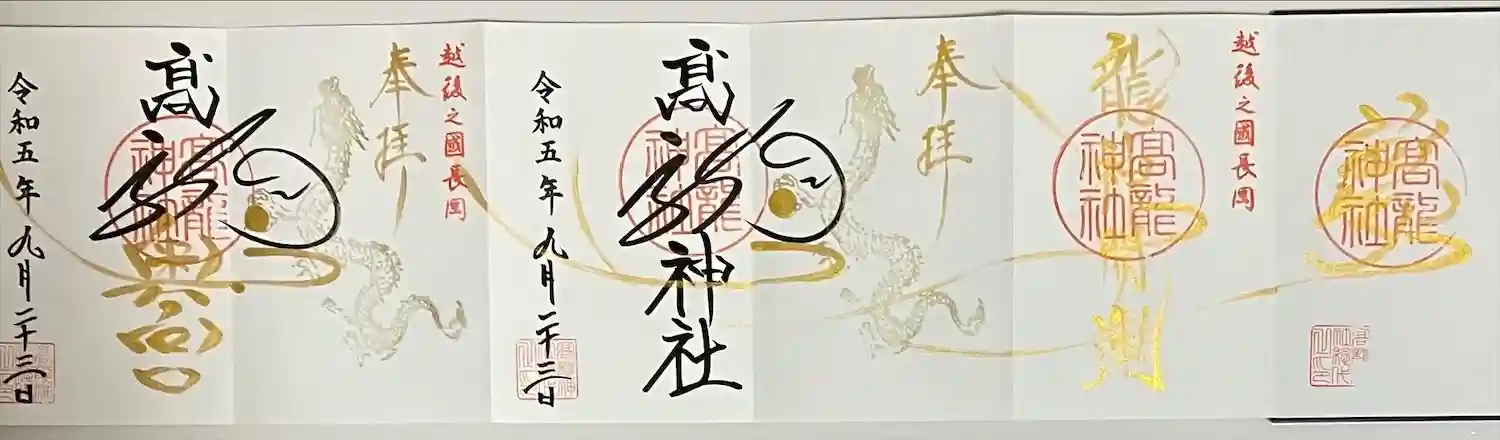 髙龍神社
越後之國長岡
龍
髙龍神社
奉拝
髙龍神社
髙龍神社
令和五年九月二十三日
越後之國長岡
奉拝
髙龍奥宮
髙龍神社
令和五年九月二十三日